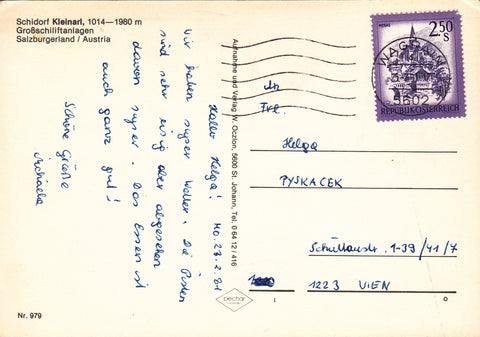 Schidorf Kleinarl, 1014—1980 m
Großschiliftanlagen
Salzburgerland / Austria
Mo. 23.2.81
Hallo Helga!
Wir haben super Wetter. Die Pisten
sind sehr eisig aber abgesehen
davon super. Das Essen ist
auch ganz gut!
Schöne Grüße
Michaela
Nr. 979
Aufnahme und Verlag W. Oczlon, 5600 St. Johann, Tel. 0 64 12 / 416
pechar
2.50
S
REPUBLIK ÖSTERREICH
WAGRAIN
5602
An
Frl.
Helga
PYSKACEK
Schüttaustr. 1-39/41/7
1223 WIEN